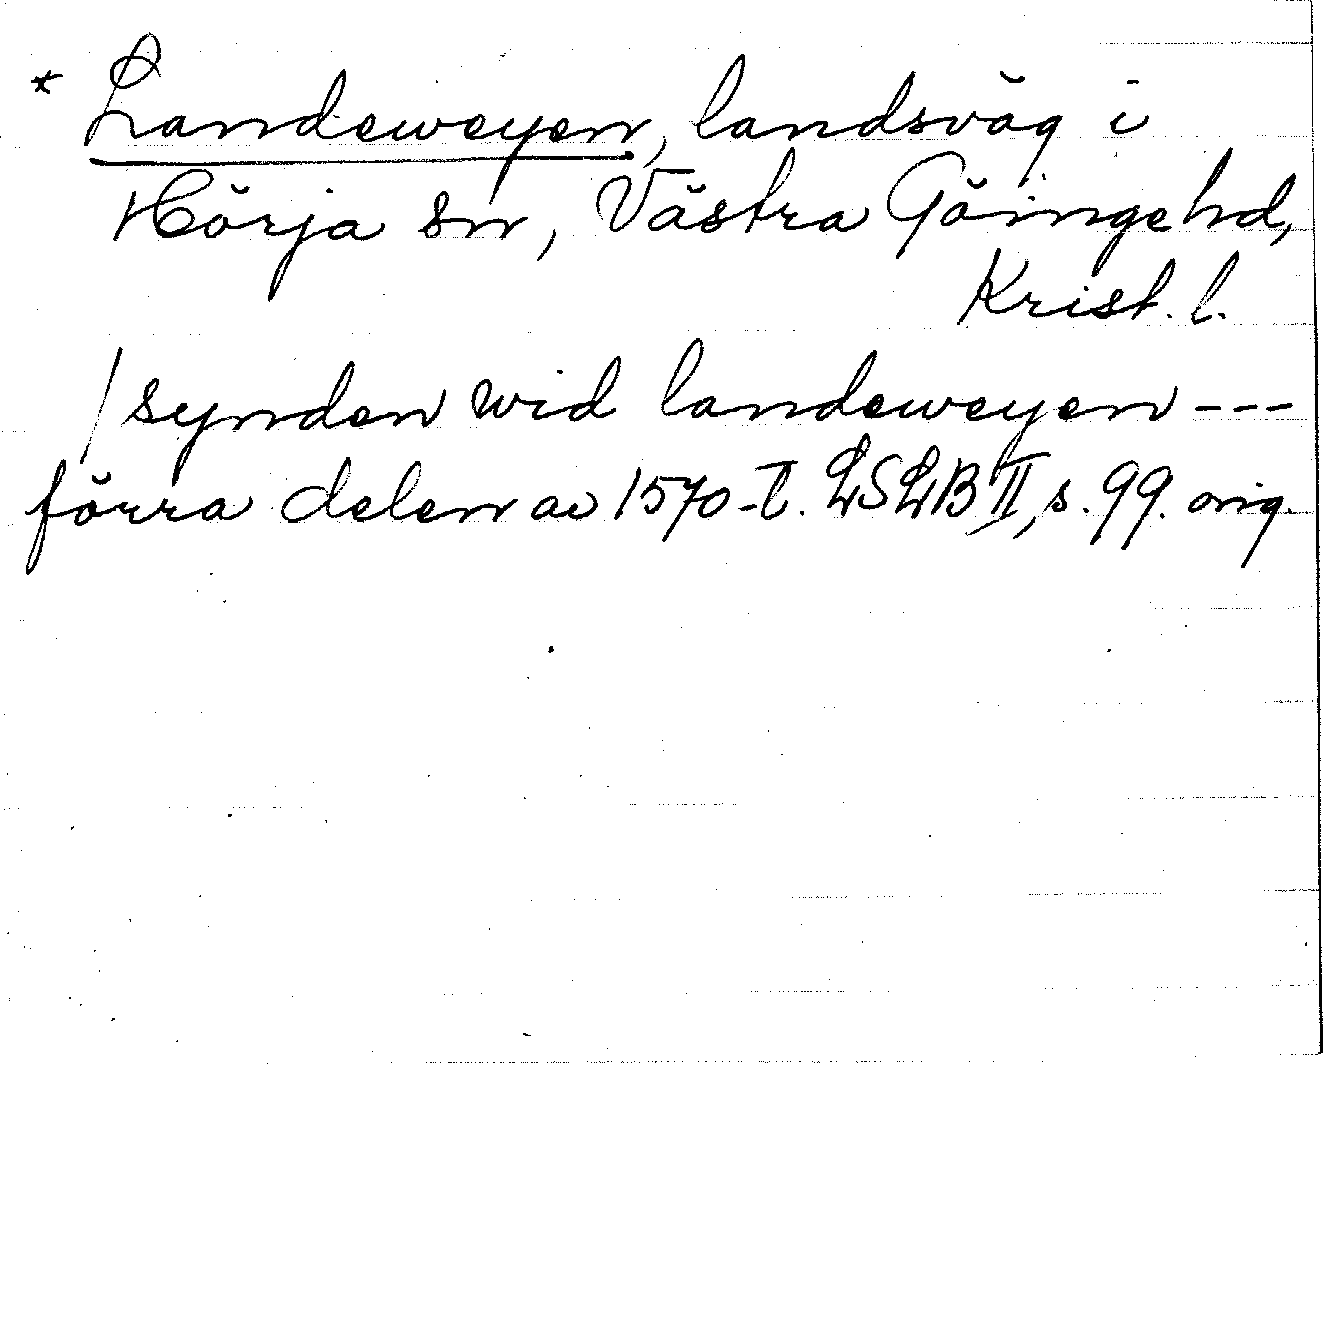 * Landeweyen, landsväg i
Hörja sn, Västra Göinge hd,
Krist. l.
/synden wid landeweyen ---
förra delen av 1570-t. LSLB II, s. 99. orig.